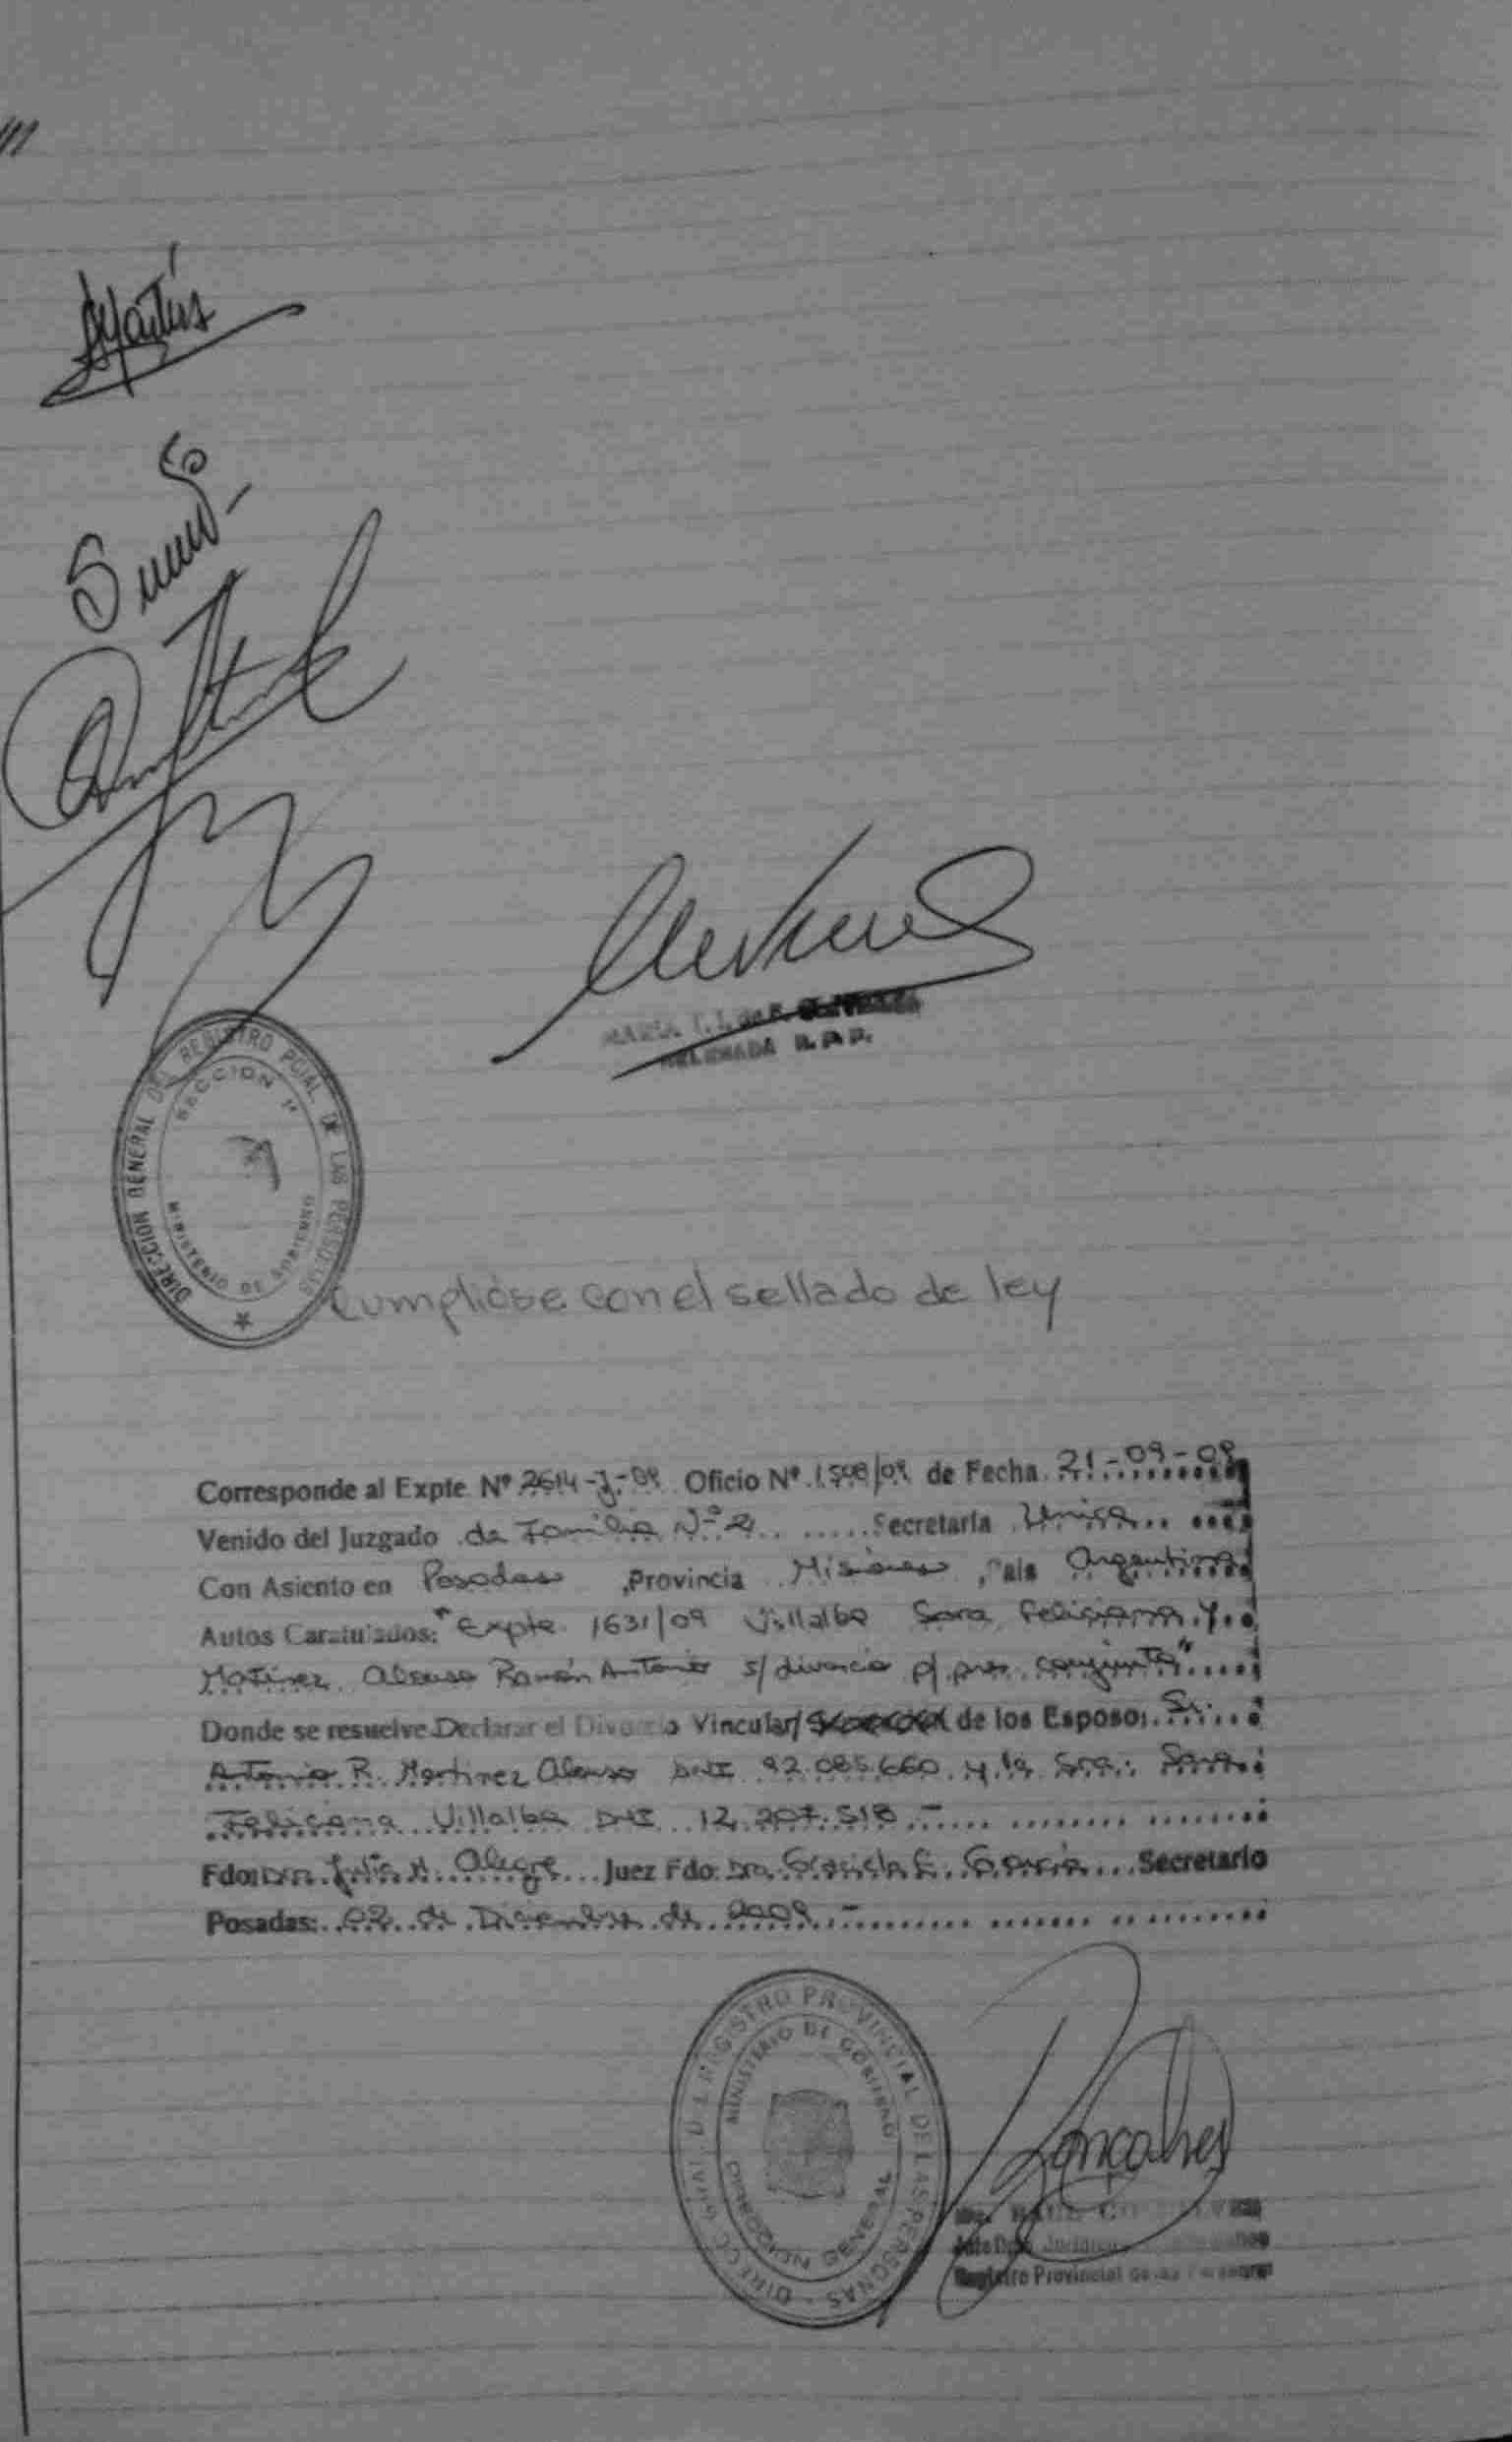 ///
DIRECCION GENERAL DEL REGISTRO PCIAL DE LAS PERSONAS
SECCION 1ª
MINISTERIO DE GOBIERNO
Cumplióse con el sellado de ley
Corresponde al Expte Nº 2614-J-09 Oficio Nº 1508/09 de Fecha 21-09-09
Venido del Juzgado de Familia Nº 2 Secretaria Unica
Con Asiento en Posadas, Provincia Misiones, Pais Argentina
Autos Caratulados: "Expte 1631/09 Villalba Sara Feliciana y
Martinez Alonso Ramón Antonio s/ divorcio p/ pres. conjunta"
Donde se resuelve Declarar el Divorcio Vincular/ de los Esposos Sr.
Antonio R. Martinez Alonso DNI 92.085.660 y la Sra.: Sara
Feliciana Villalba DNI 12.207.518 -
Fdo: Dra. Julia A. Alegre Juez Fdo: Dra. Graciela E. Garcia Secretario
Posadas: 02 de Diciembre de 2009 -
DIRECC. GRAL. DEL REGISTRO PROVINCIAL DE LAS PERSONAS
MINISTERIO DE GOBIERNO
DIRECCION GENERAL
Goncalves
Registro Provincial de las Personas